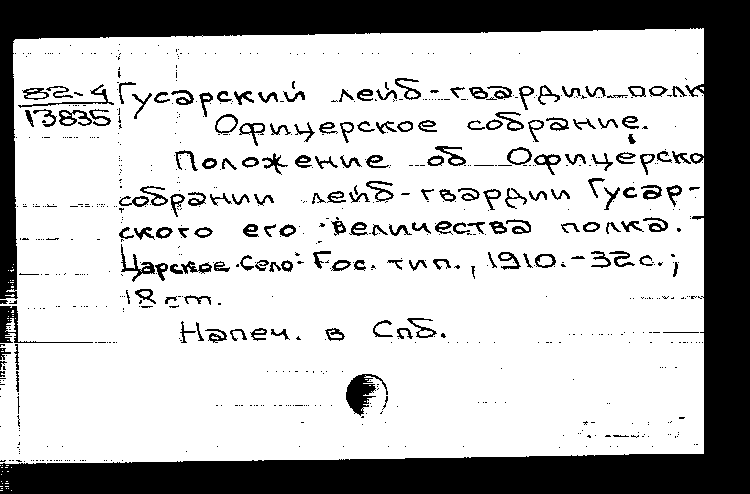 82-4
13835
Гусарский лейб-гвардии полк
Офицерское собрание.
Положение об Офицерско
собрании лейб-гвардии Гусар-
ского его величества полка. -
Царское Село: Гос. тип., 1910.-32с.;
18 ст.
Напеч. в Спб.